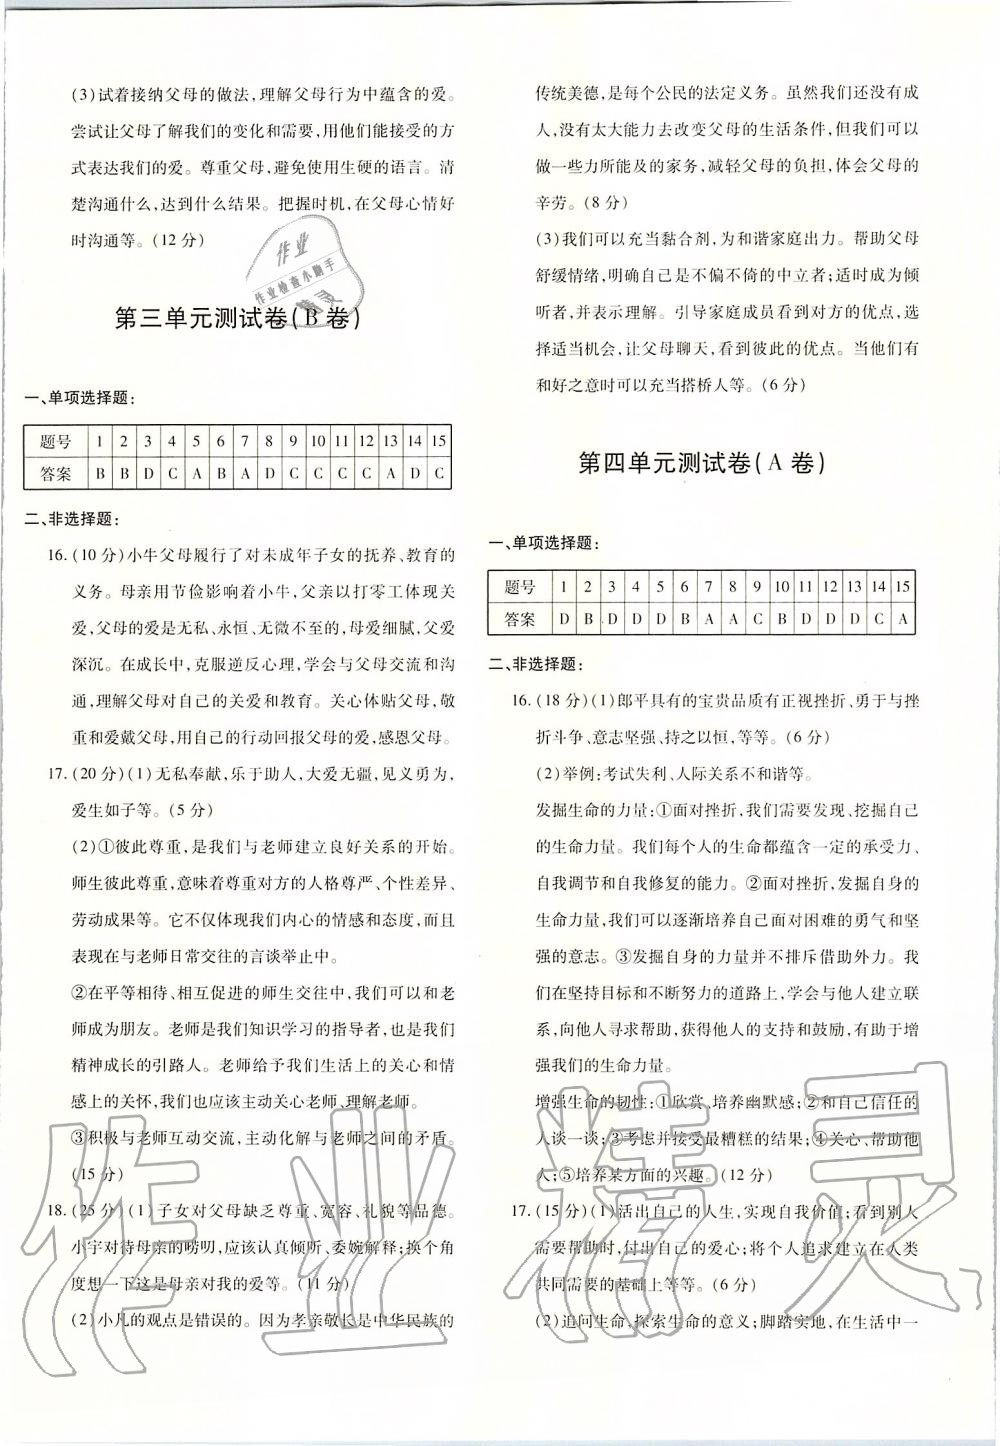 (3)试着接纳父母的做法,理解父母行为中蕴含的爱。
尝试让父母了解我们的变化和需要,用他们能接受的方
式表达我们的爱。尊重父母,避免使用生硬的语言。清
楚沟通什么,达到什么结果。把握时机,在父母心情好
时沟通等。(12 分)
作业
作业检查小助手
第三单元测试卷(B 卷)
一、单项选择题:
题号 1 2 3 4 5 6 7 8 9 10 11 12 13 14 15
答案 B B D C A B A D C C C C A D C
二、非选择题:
16. (10 分)小牛父母履行了对未成年子女的抚养、教育的
义务。母亲用节俭影响着小牛,父亲以打零工体现关
爱,父母的爱是无私、永恒、无微不至的,母爱细腻,父爱
深沉。在成长中,克服逆反心理,学会与父母交流和沟
通,理解父母对自己的关爱和教育。关心体贴父母,敬
重和爱戴父母,用自己的行动回报父母的爱,感恩父母。
17. (20 分)(1)无私奉献,乐于助人,大爱无疆,见义勇为,
爱生如子等。(5 分)
(2)①彼此尊重,是我们与老师建立良好关系的开始。
师生彼此尊重,意味着尊重对方的人格尊严、个性差异、
劳动成果等。它不仅体现我们内心的情感和态度,而且
表现在与老师日常交往的言谈举止中。
②在平等相待、相互促进的师生交往中,我们可以和老
师成为朋友。老师是我们知识学习的指导者,也是我们
精神成长的引路人。老师给予我们生活上的关心和情
感上的关怀,我们也应该主动关心老师、理解老师。
③积极与老师互动交流,主动化解与老师之间的矛盾。
(15 分)
18. (25 分)(1)子女对父母缺乏尊重、宽容、礼貌等品德。
小宇对待母亲的唠叨,应该认真倾听、委婉解释;换个角
度想一下这是母亲对我的爱等。(11 分)
(2)小凡的观点是错误的。因为孝亲敬长是中华民族的
传统美德,是每个公民的法定义务。虽然我们还没有成
人,没有太大能力去改变父母的生活条件,但我们可以
做一些力所能及的家务,减轻父母的负担,体会父母的
辛劳。(8 分)
(3)我们可以充当黏合剂,为和谐家庭出力。帮助父母
舒缓情绪,明确自己是不偏不倚的中立者;适时成为倾
听者,并表示理解。引导家庭成员看到对方的优点,选
择适当机会,让父母聊天,看到彼此的优点。当他们有
和好之意时可以充当搭桥人等。(6 分)
第四单元测试卷(A 卷)
一、单项选择题:
题号 1 2 3 4 5 6 7 8 9 10 11 12 13 14 15
答案 D B D D D B A A C B D D D C A
二、非选择题:
16. (18 分)(1)郎平具有的宝贵品质有正视挫折、勇于与挫
折斗争、意志坚强、持之以恒,等等。(6 分)
(2)举例:考试失利、人际关系不和谐等。
发掘生命的力量:①面对挫折,我们需要发现、挖掘自己
的生命力量。我们每个人的生命都蕴含一定的承受力、
自我调节和自我修复的能力。②面对挫折,发掘自身的
生命力量,我们可以逐渐培养自己面对困难的勇气和坚
强的意志。③发掘自身的力量并不排斥借助外力。我
们在坚持目标和不断努力的道路上,学会与他人建立联
系,向他人寻求帮助,获得他人的支持和鼓励,有助于增
强我们的生命力量。
增强生命的韧性:①欣赏、培养幽默感;②和自己信任的
人谈一谈;③考虑并接受最糟糕的结果;④关心、帮助他
人;⑤培养某方面的兴趣。(12 分)
17. (15 分)(1)活出自己的人生,实现自我价值;看到别人
需要帮助时,付出自己的爱心;将个人追求建立在人类
共同需要的基础上等等。(6 分)
(2)追问生命,探索生命的意义;脚踏实地,在生活中一
作业精灵